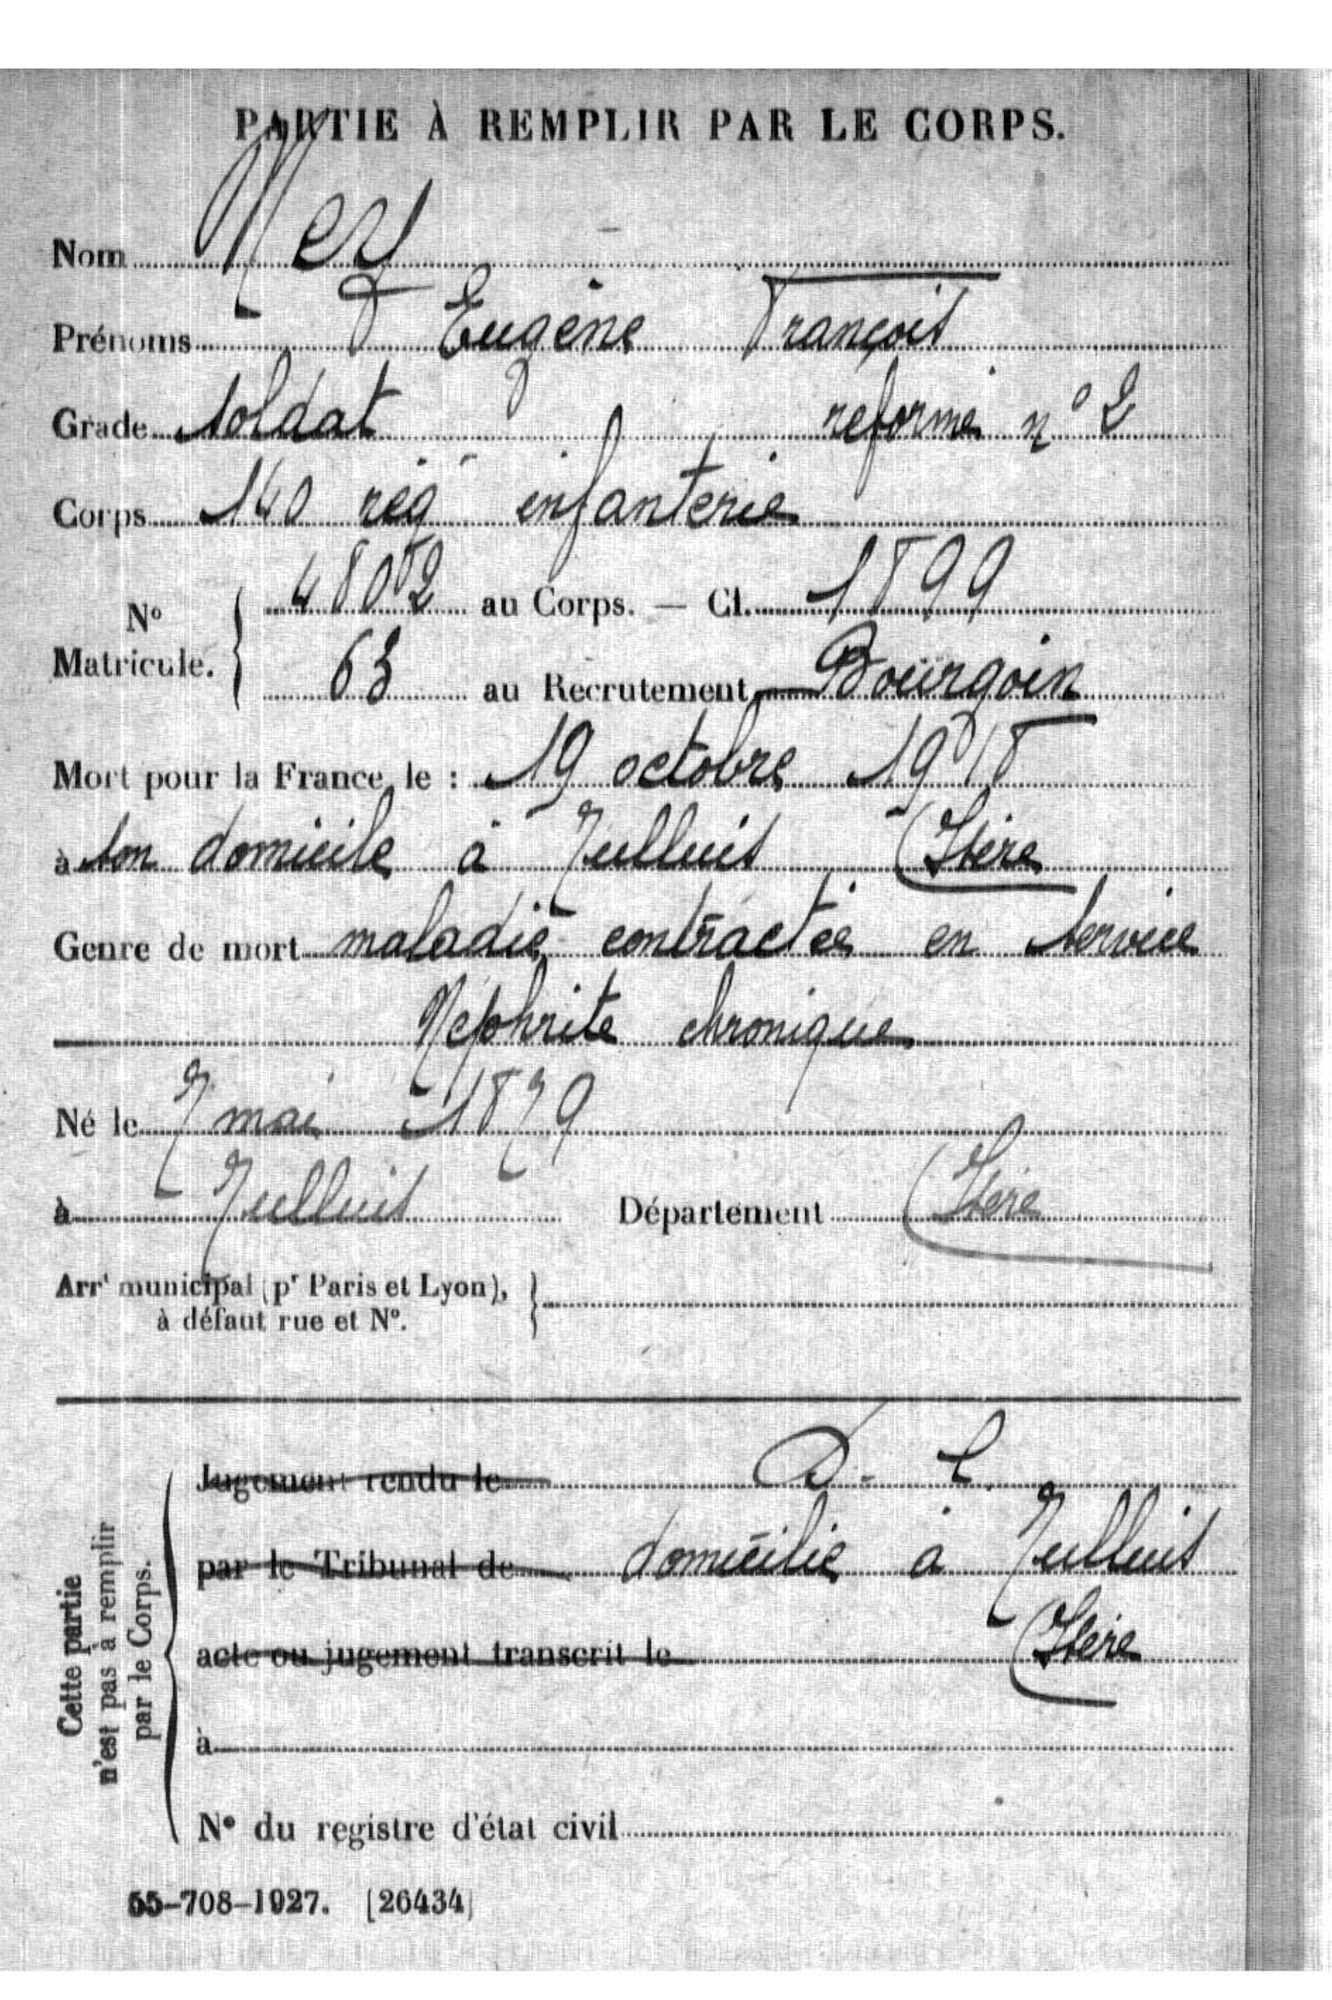 PARTIE À REMPLIR PAR LE CORPS.
Nom Mey
Prénoms Eugène François
Grade soldat réformé n° 2
Corps 140 rég infanterie
N° Matricule. 4802 au Corps. — Cl. 1899
63 au Recrutement Bourgoin
Mort pour la France le : 19 octobre 1918
à son domicile à Tullins (Isère
Genre de mort maladie contractée en service
Néphrite chronique
Né le 7 mai 1879
à Tullins Département (Isère
Arrt municipal (pr Paris et Lyon),
à défaut rue et N°.
Cette partie
n'est pas à remplir
par le Corps.
Jugement rendu le D. C.
par le Tribunal de domicilié à Tullins
acte ou jugement transcrit le (Isère
à
N° du registre d'état civil
55-708-1927. [26434]